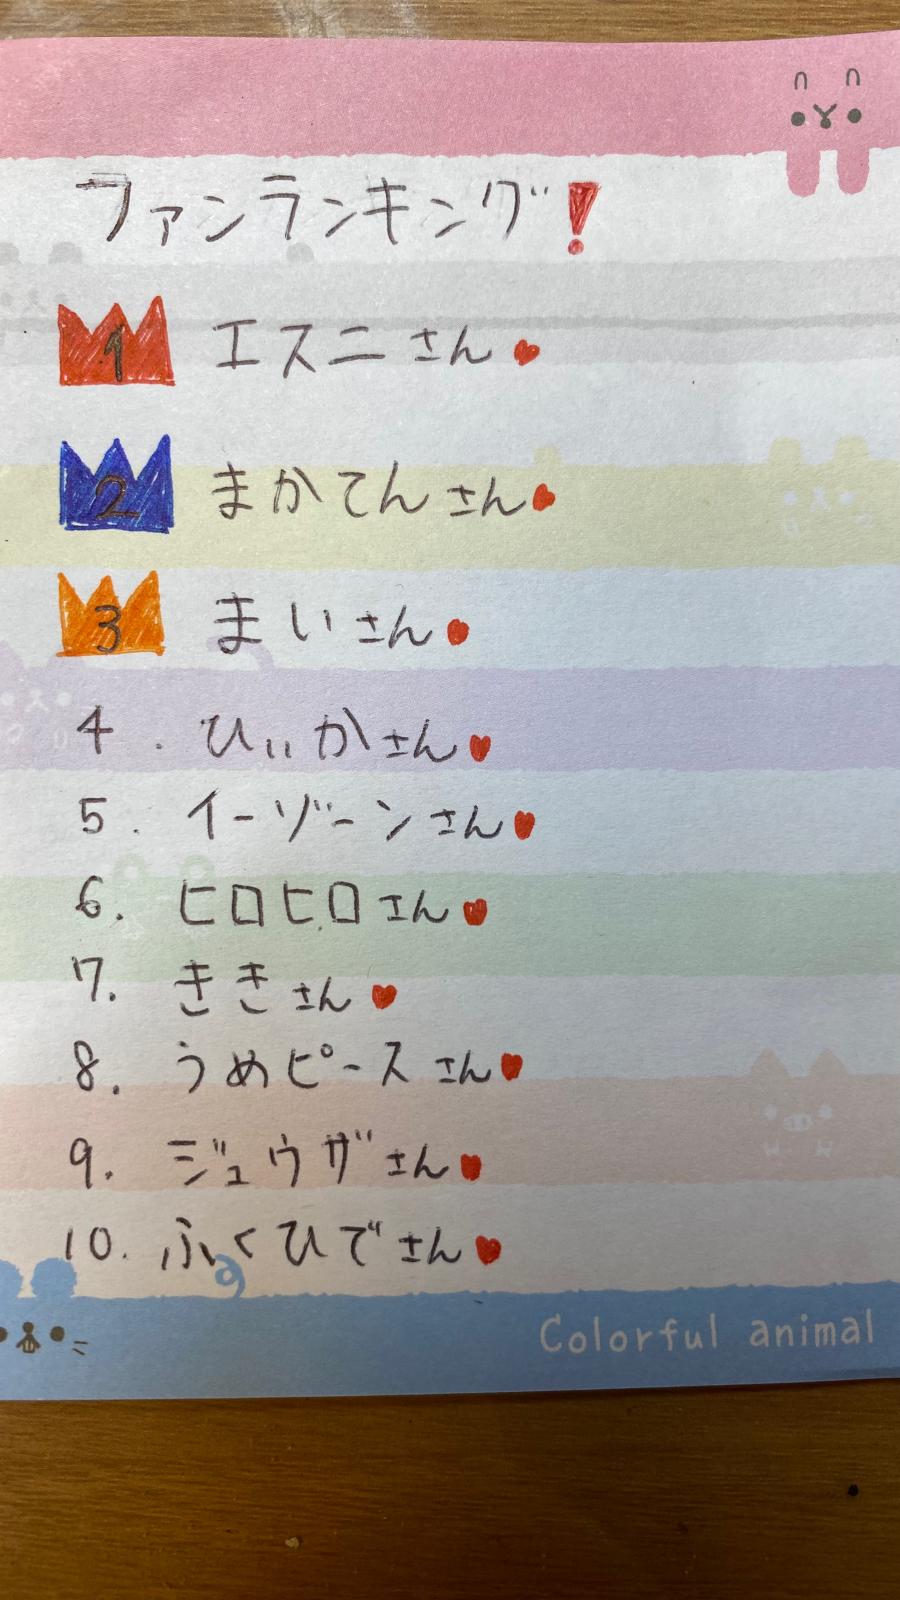 ファンランキング!
1 エスニさん
2 まかてんさん
3 まいさん
4. ひぃかさん
5. イーゾーンさん
6. ヒロヒロさん
7. ききさん
8. うめピースさん
9. ジュウザさん
10. ふくひでさん
Colorful animal